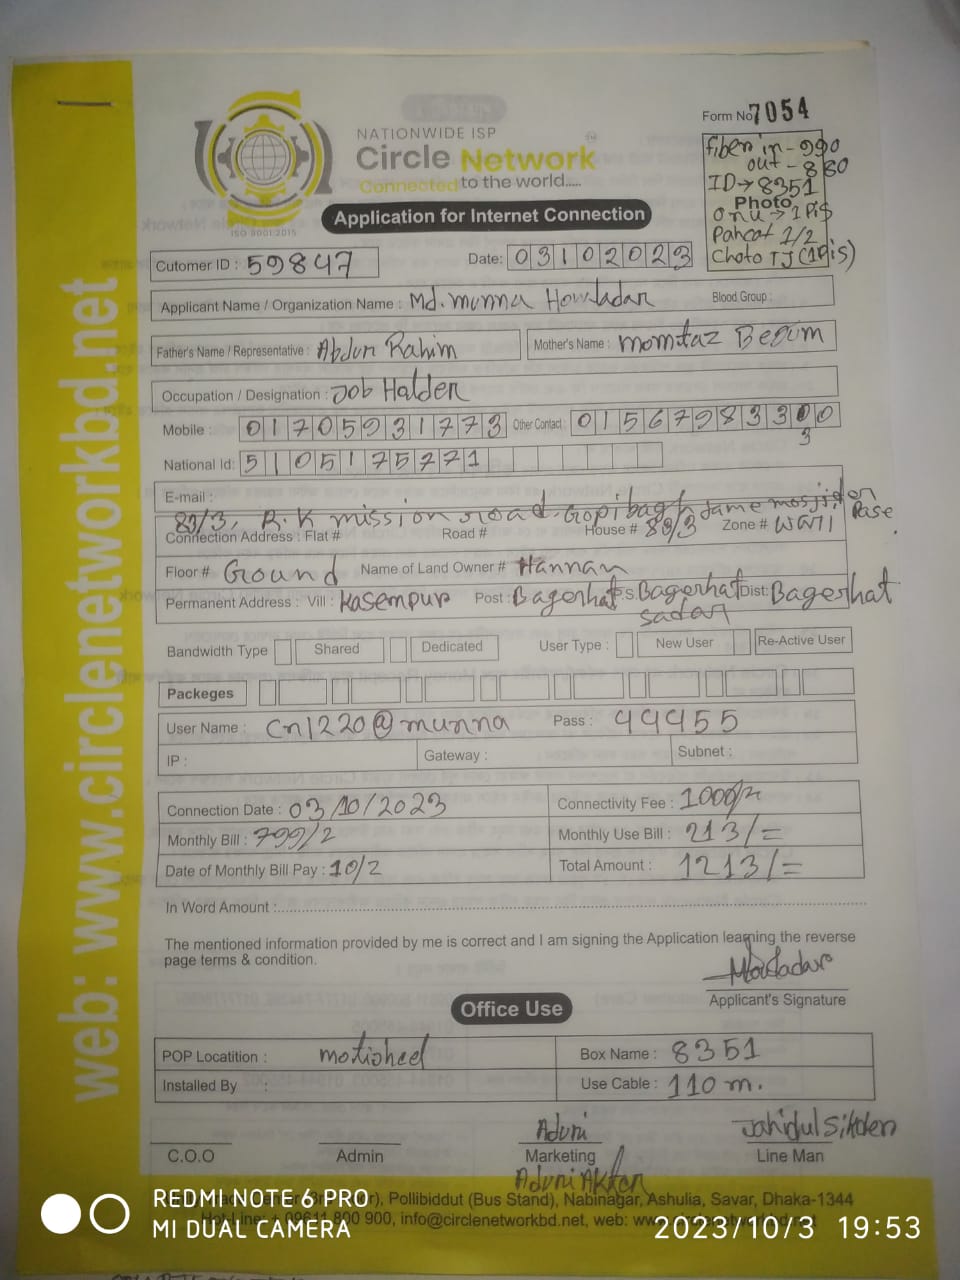 Form No 7054
NATIONWIDE ISP
Circle Network TM
Connected to the world.....
ISO 9001:2015
Application for Internet Connection
fiber in - 990
out - 880
ID → 8351
Photo
onu → 1 Pis
Pancat 1/2
Choto TJ (1 Pis)
Cutomer ID : 59847
Date: 03102023
Applicant Name / Organization Name : Md. munna Howladar Blood Group :
Father's Name / Representative : Abdur Rahim Mother's Name : momtaz Begum
Occupation / Designation : Job Halder
Mobile : 01705931773 Other Contact : 01567983300
3
National Id: 5105175771
E-mail :
83/3, R.K mission road. Gopibagh Jame mosjider Pase.
Connection Address : Flat # Road # House # 83/3 Zone # WARI
Floor # Ground Name of Land Owner # Hannan
Permanent Address : Vill : Kasempur Post : Bagerhat P.S. Bagerhat sadar Dist: Bagerhat
Bandwidth Type Shared Dedicated User Type : New User Re-Active User
Packeges
User Name : cn1220@munna Pass : 99955
IP : Gateway : Subnet :
Connection Date : 03/10/2023 Connectivity Fee : 1000/=
Monthly Bill : 799/= Monthly Use Bill : 213/=
Date of Monthly Bill Pay : 10/2 Total Amount : 1213/=
In Word Amount :
The mentioned information provided by me is correct and I am signing the Application learning the reverse
page terms & condition.
Howladar
Applicant's Signature
Office Use
POP Locatition : motijheel Box Name : 8351
Installed By : Use Cable : 110 m.
Aduri Jahidul Sikder
C.O.O Admin Marketing Line Man
Aduri Akter
Pollibiddut (Bus Stand), Nabinagar, Ashulia, Savar, Dhaka-1344
800 900, info@circlenetworkbd.net, web: www.circlenetworkbd.net
web: www.circlenetworkbd.net
REDMI NOTE 6 PRO
MI DUAL CAMERA
2023/10/3 19:53